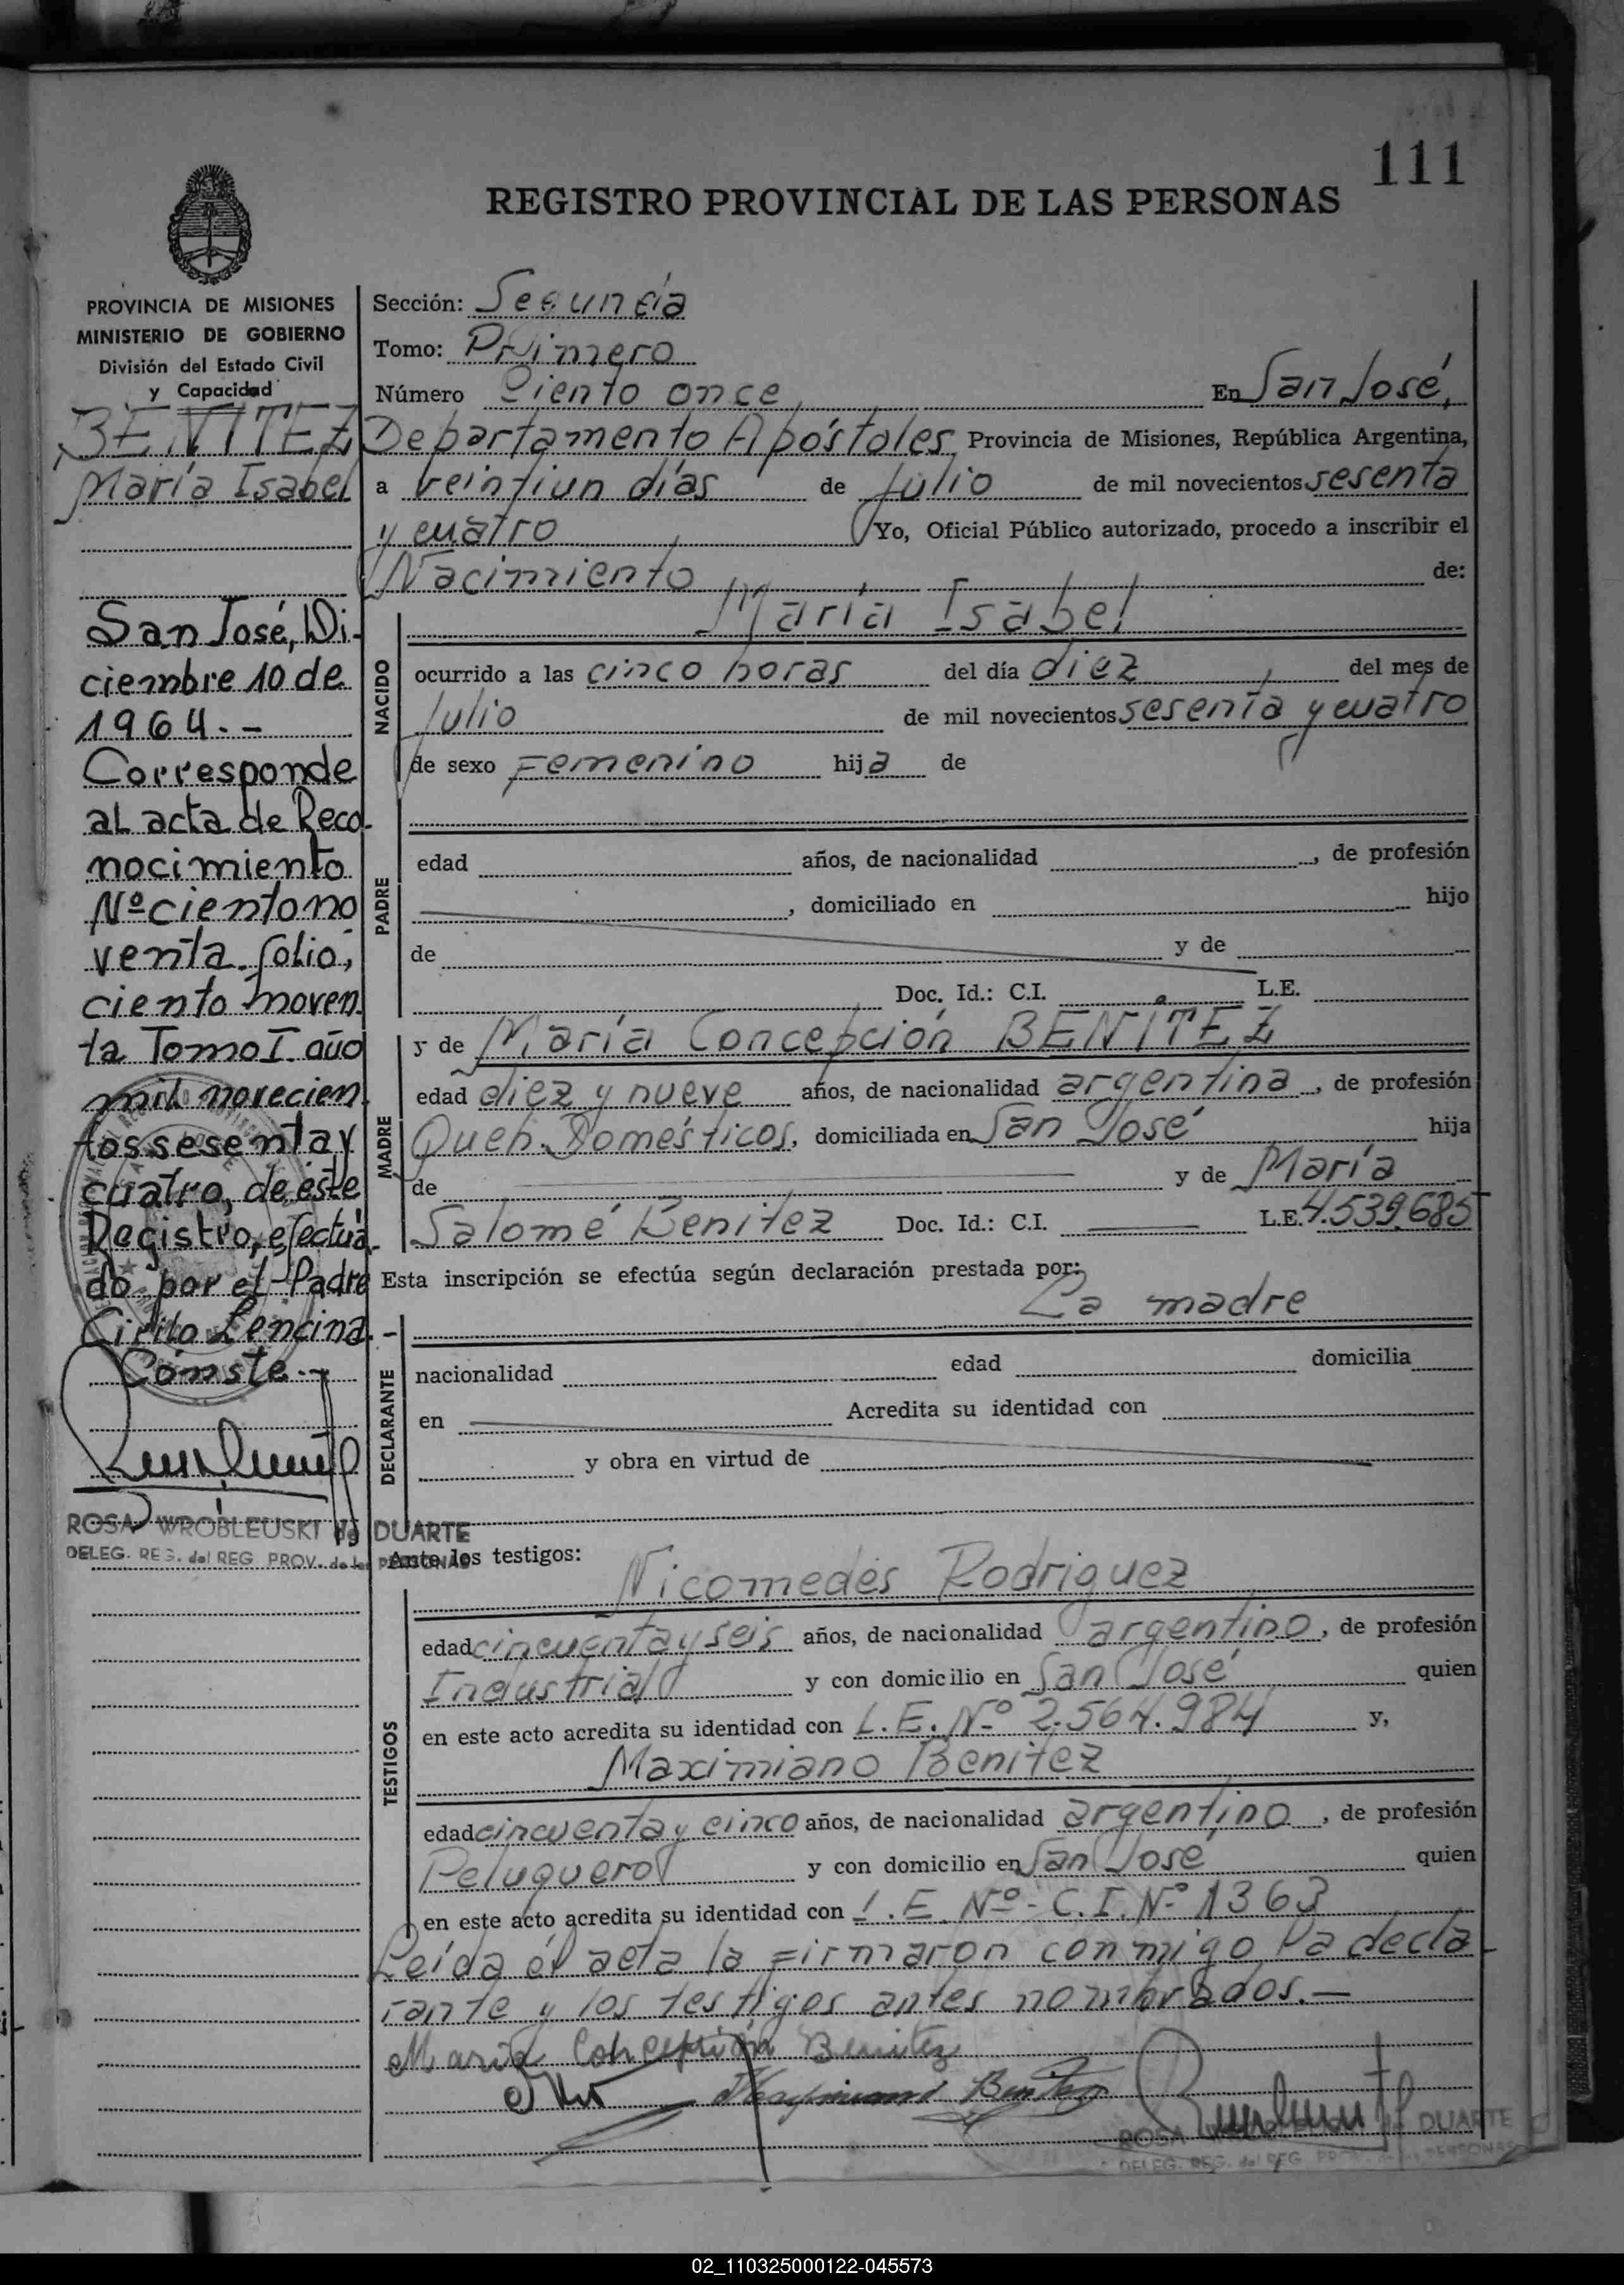 111
REGISTRO PROVINCIAL DE LAS PERSONAS
PROVINCIA DE MISIONES
MINISTERIO DE GOBIERNO
División del Estado Civil
y Capacidad
BENITEZ
María Isabel
San José, Di-
ciembre 10 de
1964.-
Corresponde
al acta de Reco-
nocimiento
Nº ciento no
venta folio,
ciento noven
ta Tomo I año
mil novecien
tos sesenta y
cuatro, de éste
Registro, efectua-
do por el Padre
Cirilo Lencina.-
Cónste.-
ROSA WROBLEUSKI de DUARTE
DELEG. REG. del REG. PROV. de las PERSONAS
Sección: Segunda
Tomo: Primero
Número Ciento once, En San José,
Departamento Apóstoles Provincia de Misiones, República Argentina,
a veintiun días de Julio de mil novecientos sesenta
y cuatro Yo, Oficial Público autorizado, procedo a inscribir el
Nacimiento de:
María Isabel
NACIDO
ocurrido a las cinco horas del día diez, del mes de
Julio de mil novecientos sesenta y cuatro
de sexo Femenino hija de
PADRE
edad años, de nacionalidad , de profesión
, domiciliado en hijo
de y de
Doc. Id.: C.I. L.E.
MADRE
y de María Concepción BENITEZ
edad diez y nueve años, de nacionalidad argentina, de profesión
Queh. Domésticos, domiciliada en San José hija
de y de María
Salomé Benitez Doc. Id.: C.I. L.E. 4.539.685
Esta inscripción se efectúa según declaración prestada por:
La madre
DECLARANTE
nacionalidad edad domicilia
en Acredita su identidad con
y obra en virtud de
Ante los testigos:
TESTIGOS
Nicomedes Rodriguez
edad cincuenta y seis años, de nacionalidad argentino, de profesión
Industrial y con domicilio en San José quien
en este acto acredita su identidad con L.E. Nº 2.564.984 y,
Maximiano Benitez
edad cincuenta y cinco años, de nacionalidad argentino, de profesión
Peluquero y con domicilio en San José quien
en este acto acredita su identidad con L.E. Nº- C.I. Nº 1363
Leída el acta la firmaron conmigo la decla-
rante y los testigos antes nombrados.-
María Concepción Benitez
Benitez
ROSA DUARTE
DELEG. REG. del REG PERSONAS
02_110325000122-045573